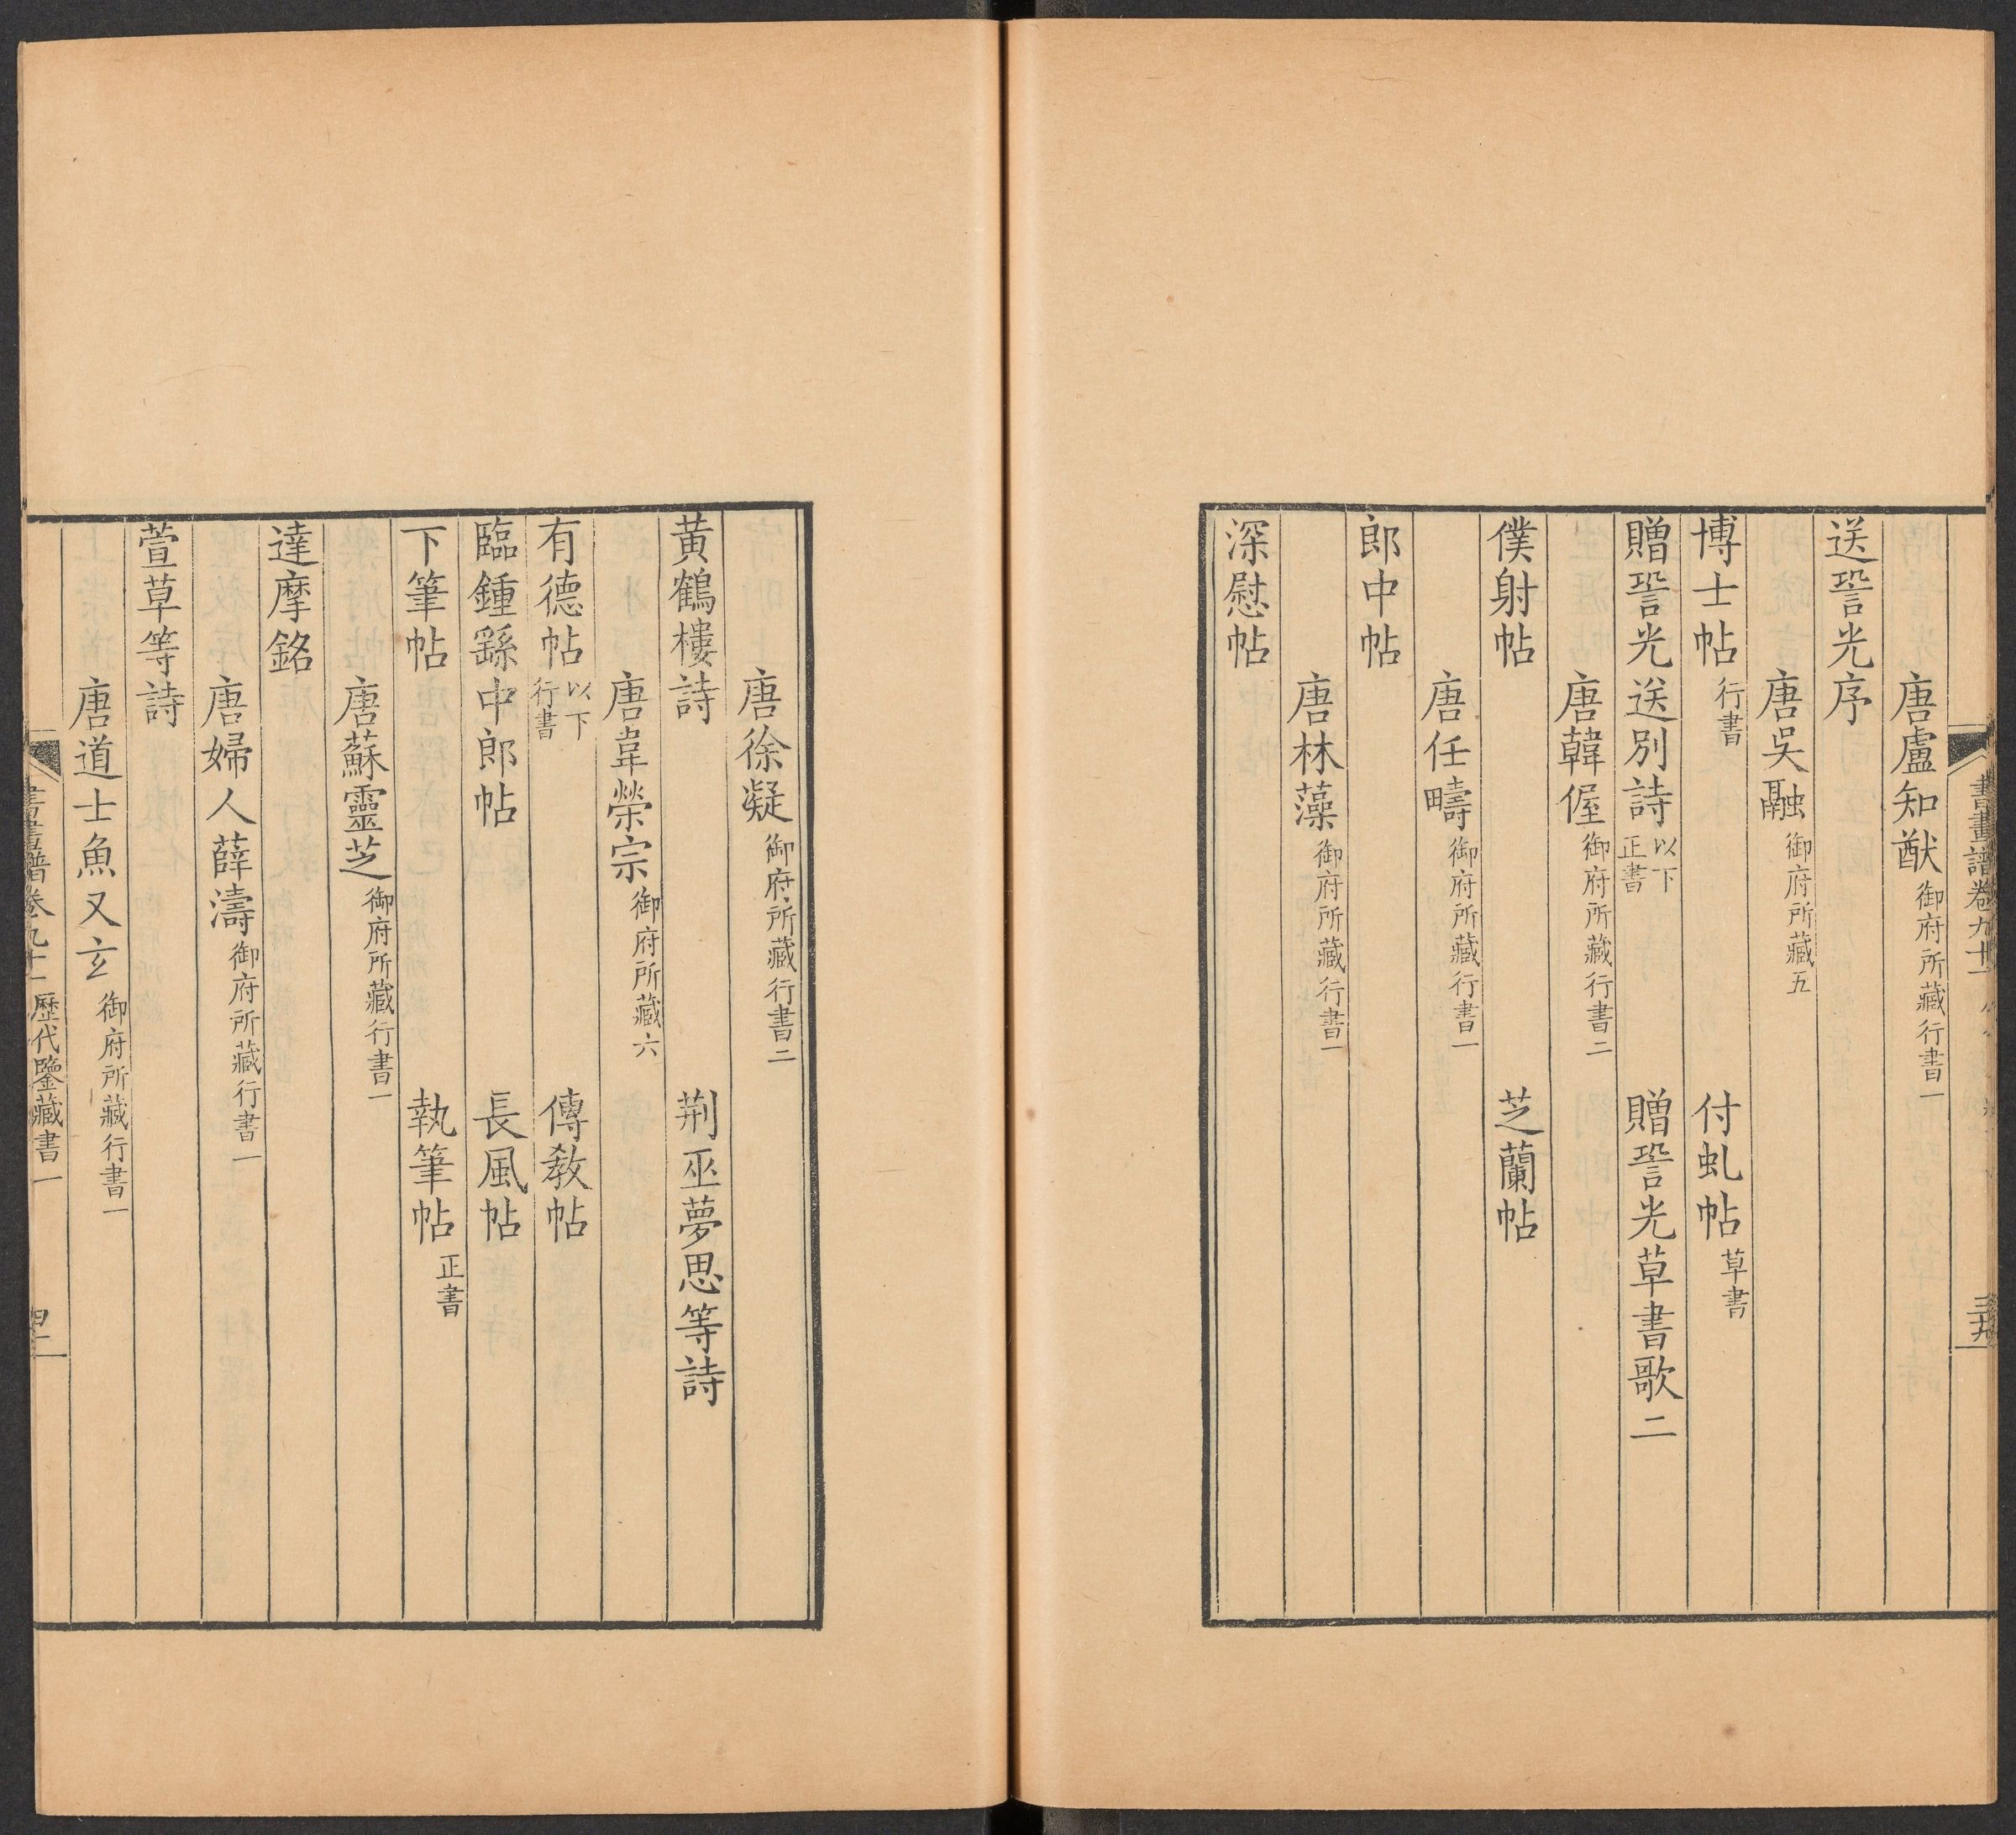 書畫譜卷九十一
三十九
唐盧知猷 御府所藏行書一
送䛒光序
唐吳融 御府所藏五
博士帖 行書 付虬帖 草書
贈䛒光送別詩 以下正書 贈䛒光草書歌二
唐韓偓 御府所藏行書二
僕射帖 芝蘭帖
唐任疇 御府所藏行書一
郎中帖
唐林藻 御府所藏行書一
深慰帖
唐徐凝 御府所藏行書二
黃鶴樓詩 荆巫夢思等詩
唐韋榮宗 御府所藏六
有德帖 以下行書 傳教帖
臨鍾繇中郎帖 長風帖
下筆帖 執筆帖 正書
唐蘇靈芝 御府所藏行書一
達摩銘
唐婦人薛濤 御府所藏行書一
萱草等詩
唐道士魚又玄 御府所藏行書一
書畫譜卷九十一 歷代鑒藏書一